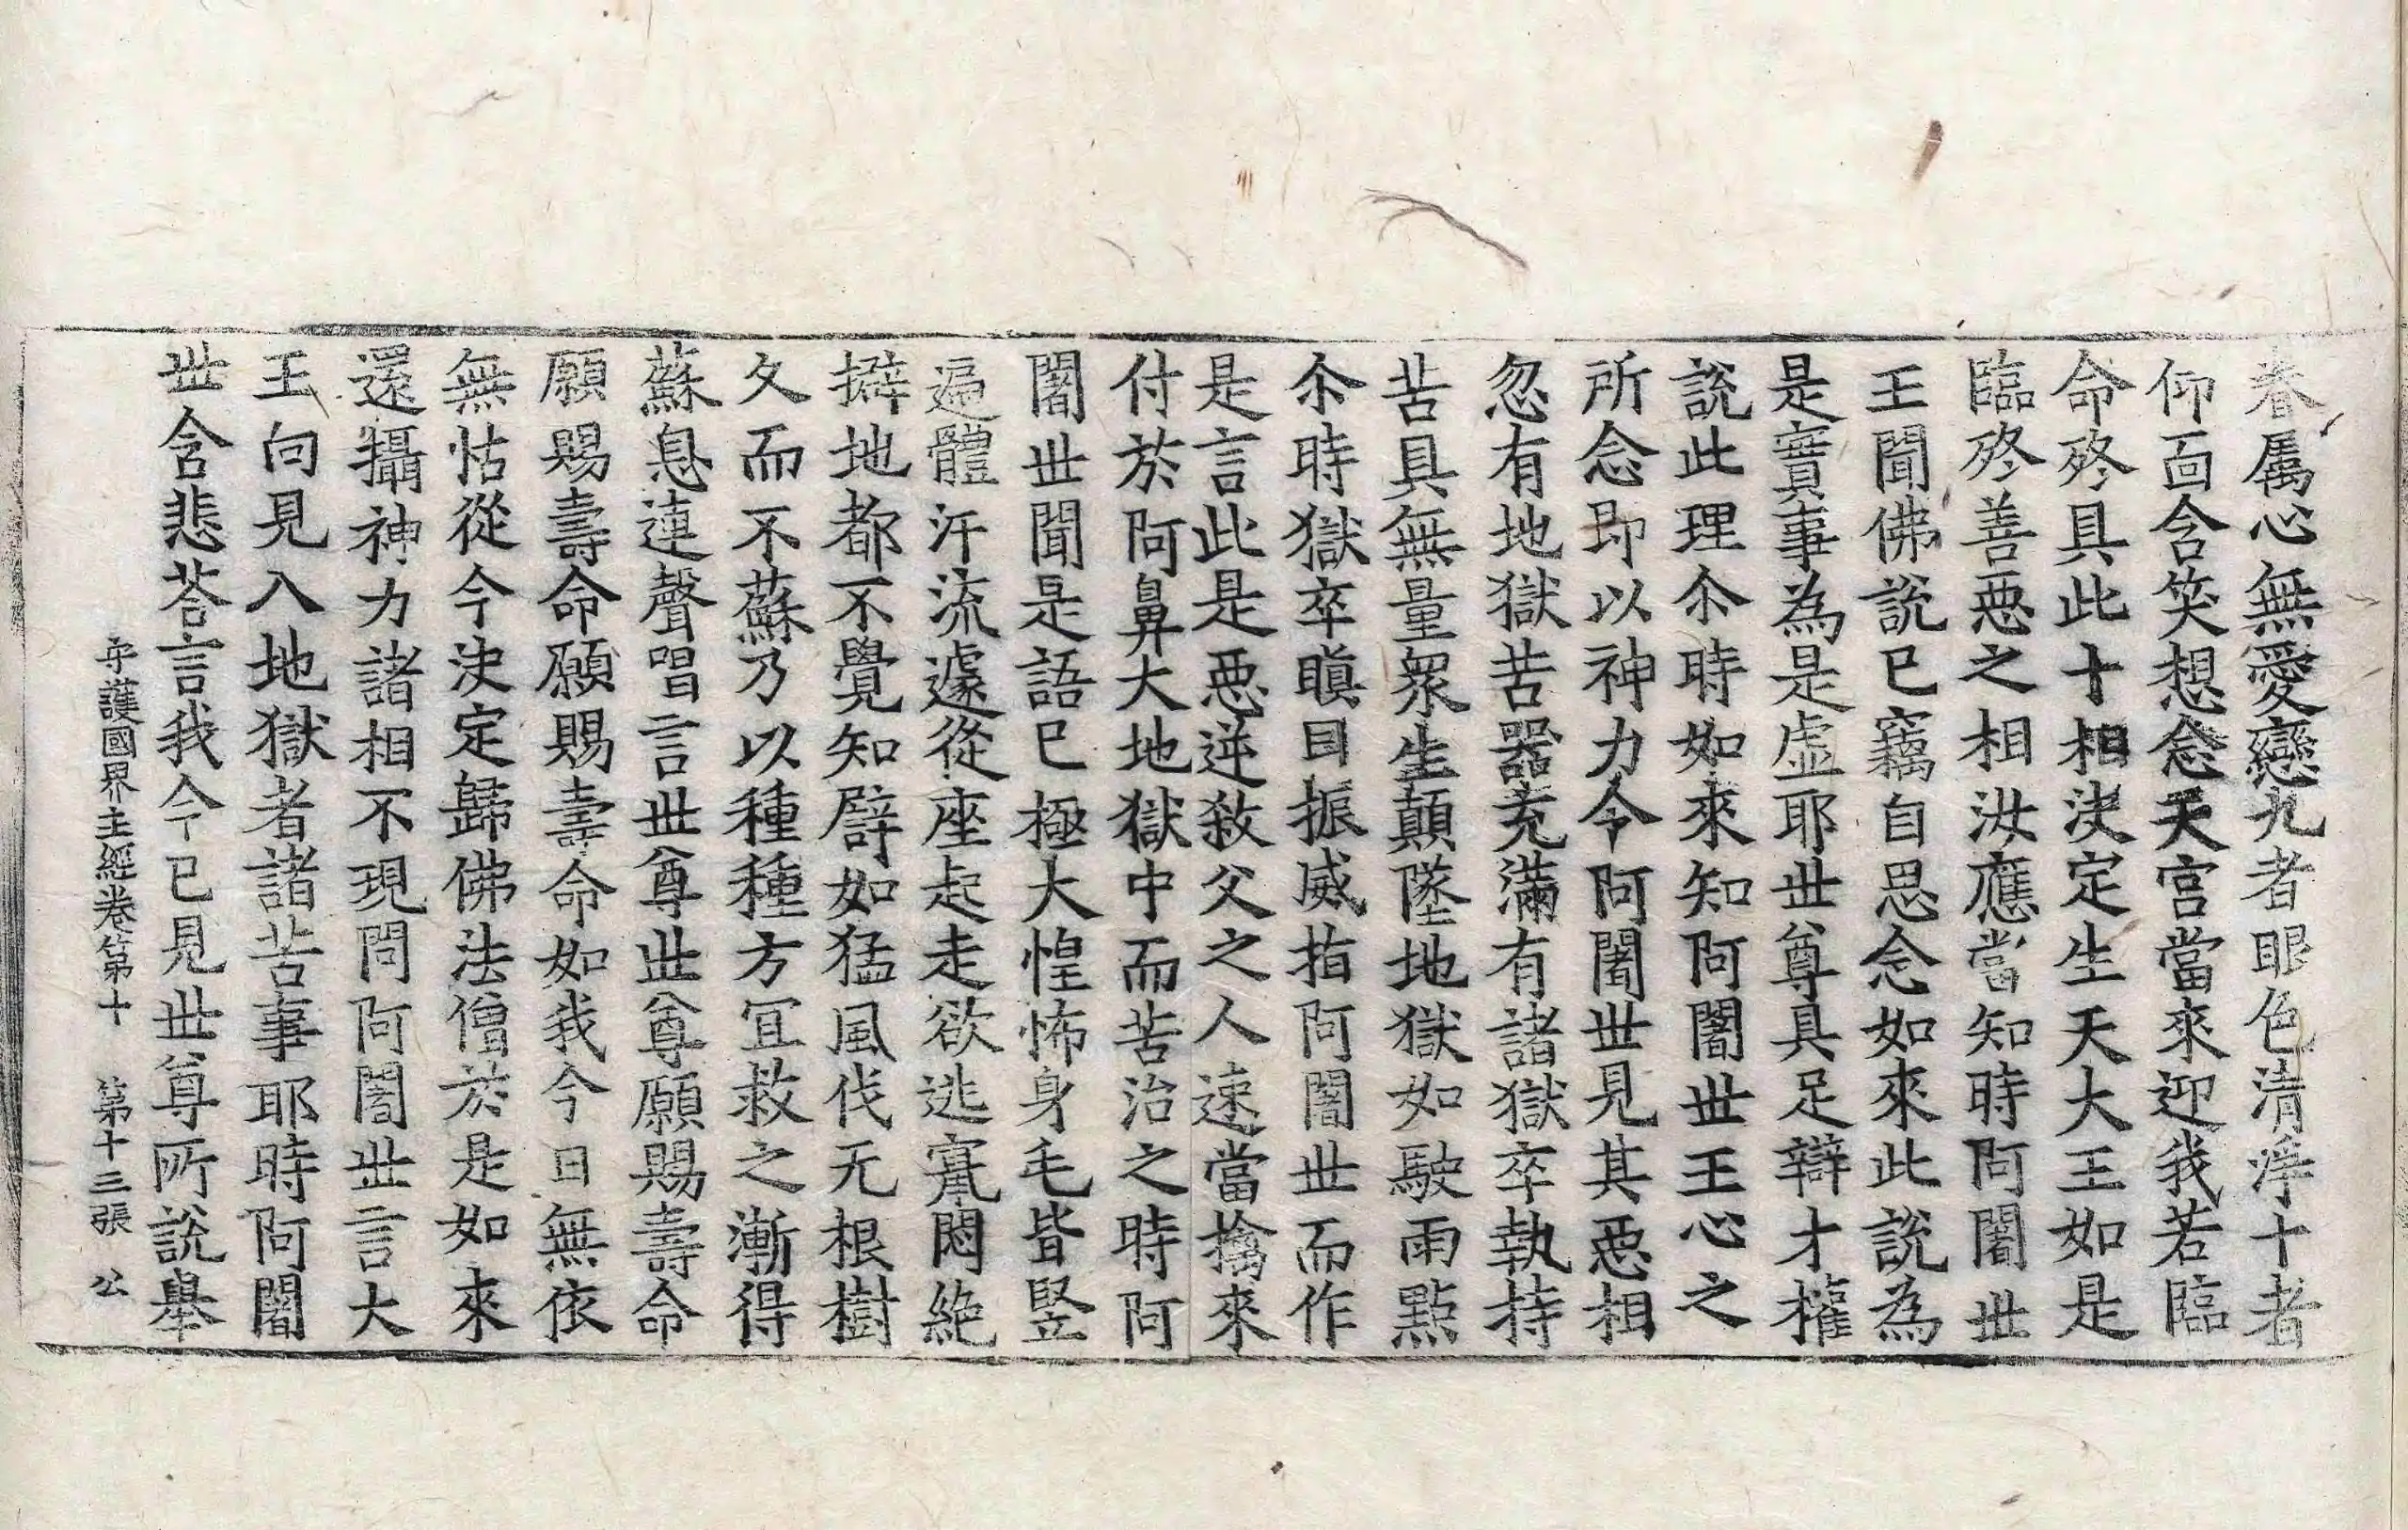 眷屬心無愛戀九者眼色清淨十者
仰面含笑想念天宮當來迎我若臨
命終具此十相決定生天大王如是
臨終善惡之相汝應當知時阿闍世
王聞佛說已竊自思念如來此說為
是實事為是虛耶世尊具足辯才權
說此理尒時如來知阿闍世王心之
所念即以神力令阿闍世見其惡相
忽有地獄苦器充滿有諸獄卒執持
苦具無量眾生顛墜地獄如駛雨點
尒時獄卒瞋目振威指阿闍世而作
是言此是惡逆殺父之人速當擒來
付於阿鼻大地獄中而苦治之時阿
闍世聞是語已極大惶怖身毛皆豎
遍體汗流遽從座起走欲逃竄悶絕
擗地都不覺知譬如猛風伐无根樹
久而不蘇乃以種種方冝救之漸得
蘇息連聲唱言世尊世尊願賜壽命
願賜壽命願賜壽命如我今日無依
無怙從今決定歸佛法僧於是如來
還攝神力諸相不現問阿闍世言大
王向見入地獄者諸苦事耶時阿闍
世含悲荅言我今已見世尊所說舉
守護國界主經卷第十　第十三張　公